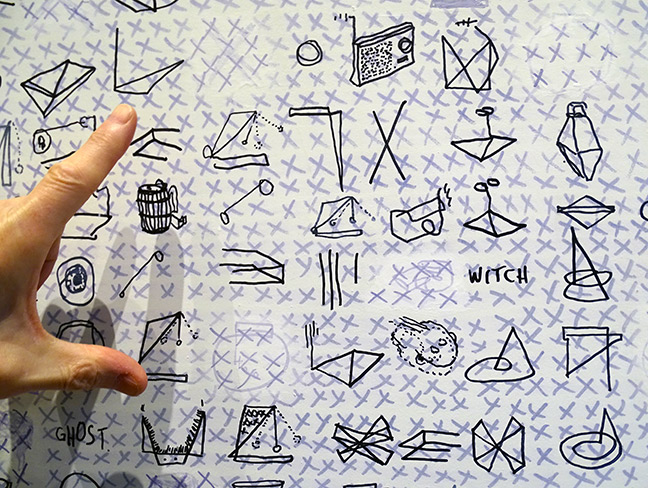 WITCH
GHOST.